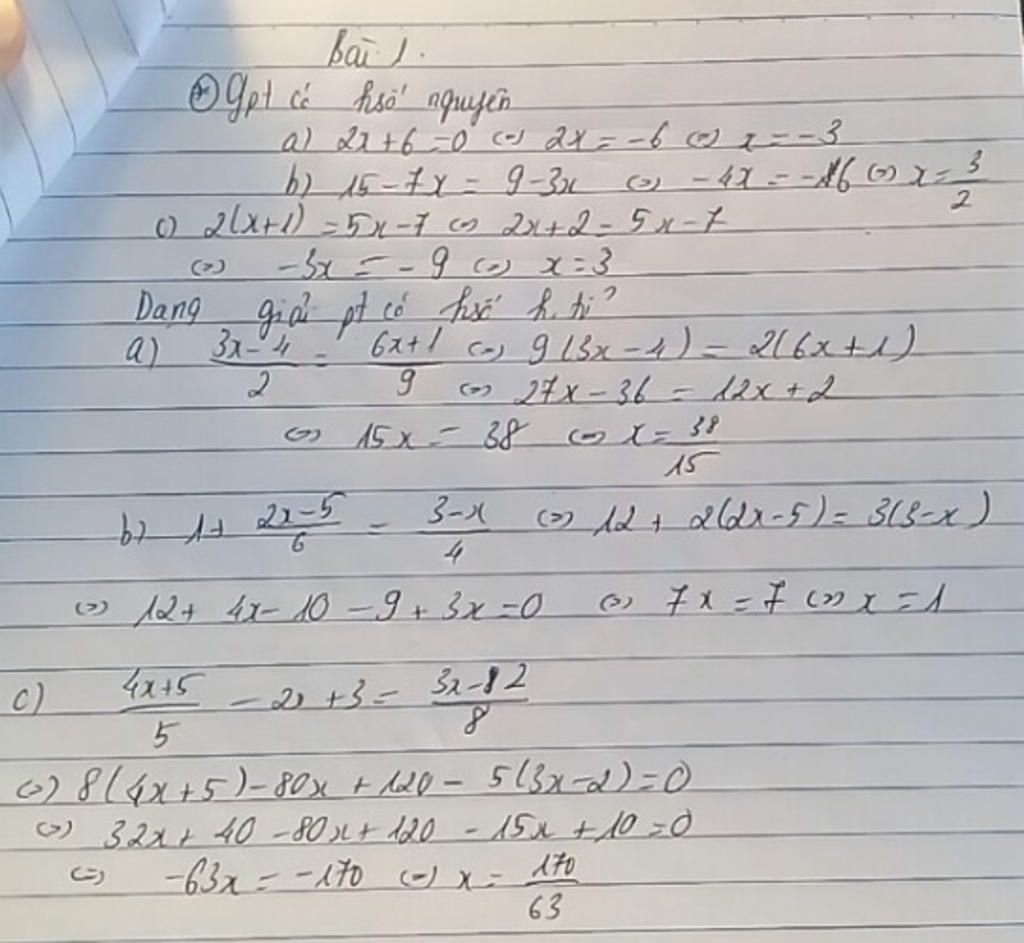 Bài 1.
⊛ Gpt có hsố nguyên
a) 2x+6=0 <=> 2x = -6 <=> x = -3
b) 15-7x = 9-3x <=> -4x = -6 <=> x = 3/2
c) 2(x+1) = 5x-7 <=> 2x+2 = 5x-7
<=> -3x = -9 <=> x = 3
Dạng giải pt có hsố h.tỉ
a) (3x-4)/2 = (6x+1)/9 <=> 9(3x-4) = 2(6x+1)
<=> 27x-36 = 12x+2
<=> 15x = 38 <=> x = 38/15
b) 1+ (2x-5)/6 = (3-x)/4 <=> 12 + 2(2x-5) = 3(3-x)
<=> 12+ 4x-10 -9+3x=0 <=> 7x = 7 <=> x = 1
c) (4x+5)/5 - 2x +3 = (3x-2)/8
<=> 8(4x+5)-80x+120-5(3x-2)=0
<=> 32x+40-80x+120-15x+10=0
<=> -63x = -170 <=> x = 170/63